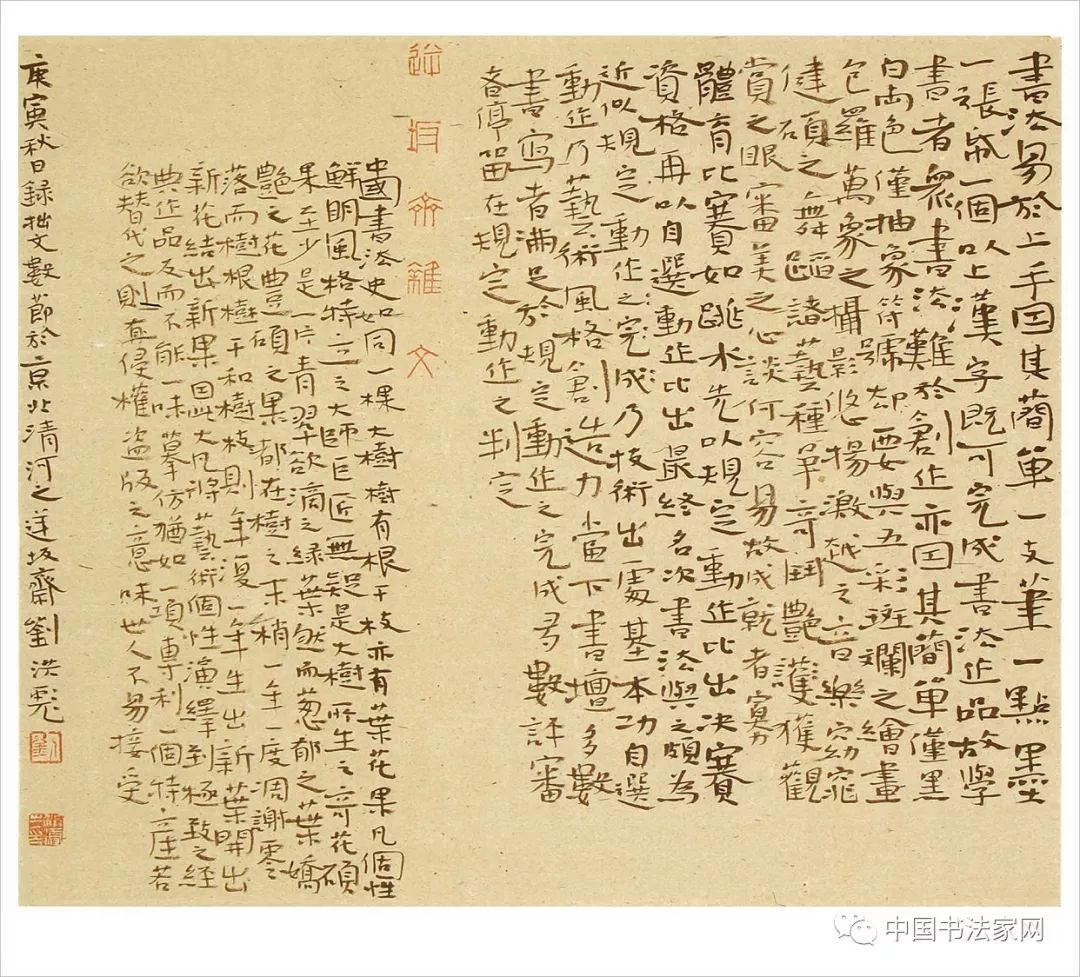 書法易於上手因其簡單一支筆一點墨
一張紙一個以上漢字既可完成書法作品故學
書者眾書法難於創作亦因其簡單僅黑
白兩色僅抽象符號却要與五彩斑斕之繪畫
包羅萬象之攝影悠揚激越之音樂窈窕
健碩之舞蹈諸藝種爭奇鬥艷獲獲觀
賞之眼審美之心談何容易故成就者寡
體育比賽如跳水先以規定動作比出決賽
資格再以自選動作比出最終名次書法與之頗為
近似規定動作之完成乃技術出處基本功自選
動作乃藝術風格創造力當下書壇多數
書寫者滿足於規定動作之完成多數評審
者停留在規定動作之判定
逆坂齋雜文
中國書法史如同一棵大樹樹有根干枝亦有葉花果凡個性
鮮明風格特立之大師巨匠無疑是大樹所生之奇花碩
果至少是一片青翠欲滴之綠葉然而葱郁之葉嬌
艷之花豐碩之果都在樹之末梢一年一度凋謝零
落而樹根樹干和樹枝則年復一年生出新葉開出
新花結出新果因此大凡將藝術個性演繹到極致之經
典作品反而不能一味摹仿猶如一項專利一個特產若
欲替代之則真侵權盜版之意味世人不易接受
庚寅秋日錄拙文數節於京北清河之逆坂齋劉洪彪
中国书法家网